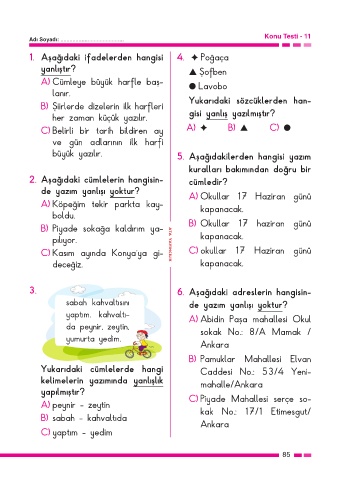 Adı Soyadı: ..........................
Konu Testi - 11
1. Aşağıdaki ifadelerden hangisi
yanlıştır?
A) Cümleye büyük harfle baş-
lanır.
B) Şiirlerde dizelerin ilk harfleri
her zaman küçük yazılır.
C) Belirli bir tarih bildiren ay
ve gün adlarının ilk harfi
büyük yazılır.
2. Aşağıdaki cümlelerin hangisin-
de yazım yanlışı yoktur?
A) Köpeğim tekir parkta kay-
boldu.
B) Piyade sokağa kaldırım ya-
pılıyor.
C) Kasım ayında Konya'ya gi-
deceğiz.
3.
sabah kahvaltısını
yaptım. kahvaltı-
da peynir, zeytin,
yumurta yedim.
Yukarıdaki cümlelerde hangi
kelimelerin yazımında yanlışlık
yapılmıştır?
A) peynir - zeytin
B) sabah - kahvaltıda
C) yaptım - yedim
4. ✦ Poğaça
▲ Şofben
● Lavobo
Yukarıdaki sözcüklerden han-
gisi yanlış yazılmıştır?
A) ✦ B) ▲ C) ●
5. Aşağıdakilerden hangisi yazım
kuralları bakımından doğru bir
cümledir?
A) Okullar 17 Haziran günü
kapanacak.
B) Okullar 17 haziran günü
kapanacak.
C) okullar 17 Haziran günü
kapanacak.
6. Aşağıdaki adreslerin hangisin-
de yazım yanlışı yoktur?
A) Abidin Paşa mahallesi Okul
sokak No.: 8/A Mamak /
Ankara
B) Pamuklar Mahallesi Elvan
Caddesi No.: 53/4 Yeni-
mahalle/Ankara
C) Piyade Mahallesi serçe so-
kak No.: 17/1 Etimesgut/
Ankara
85